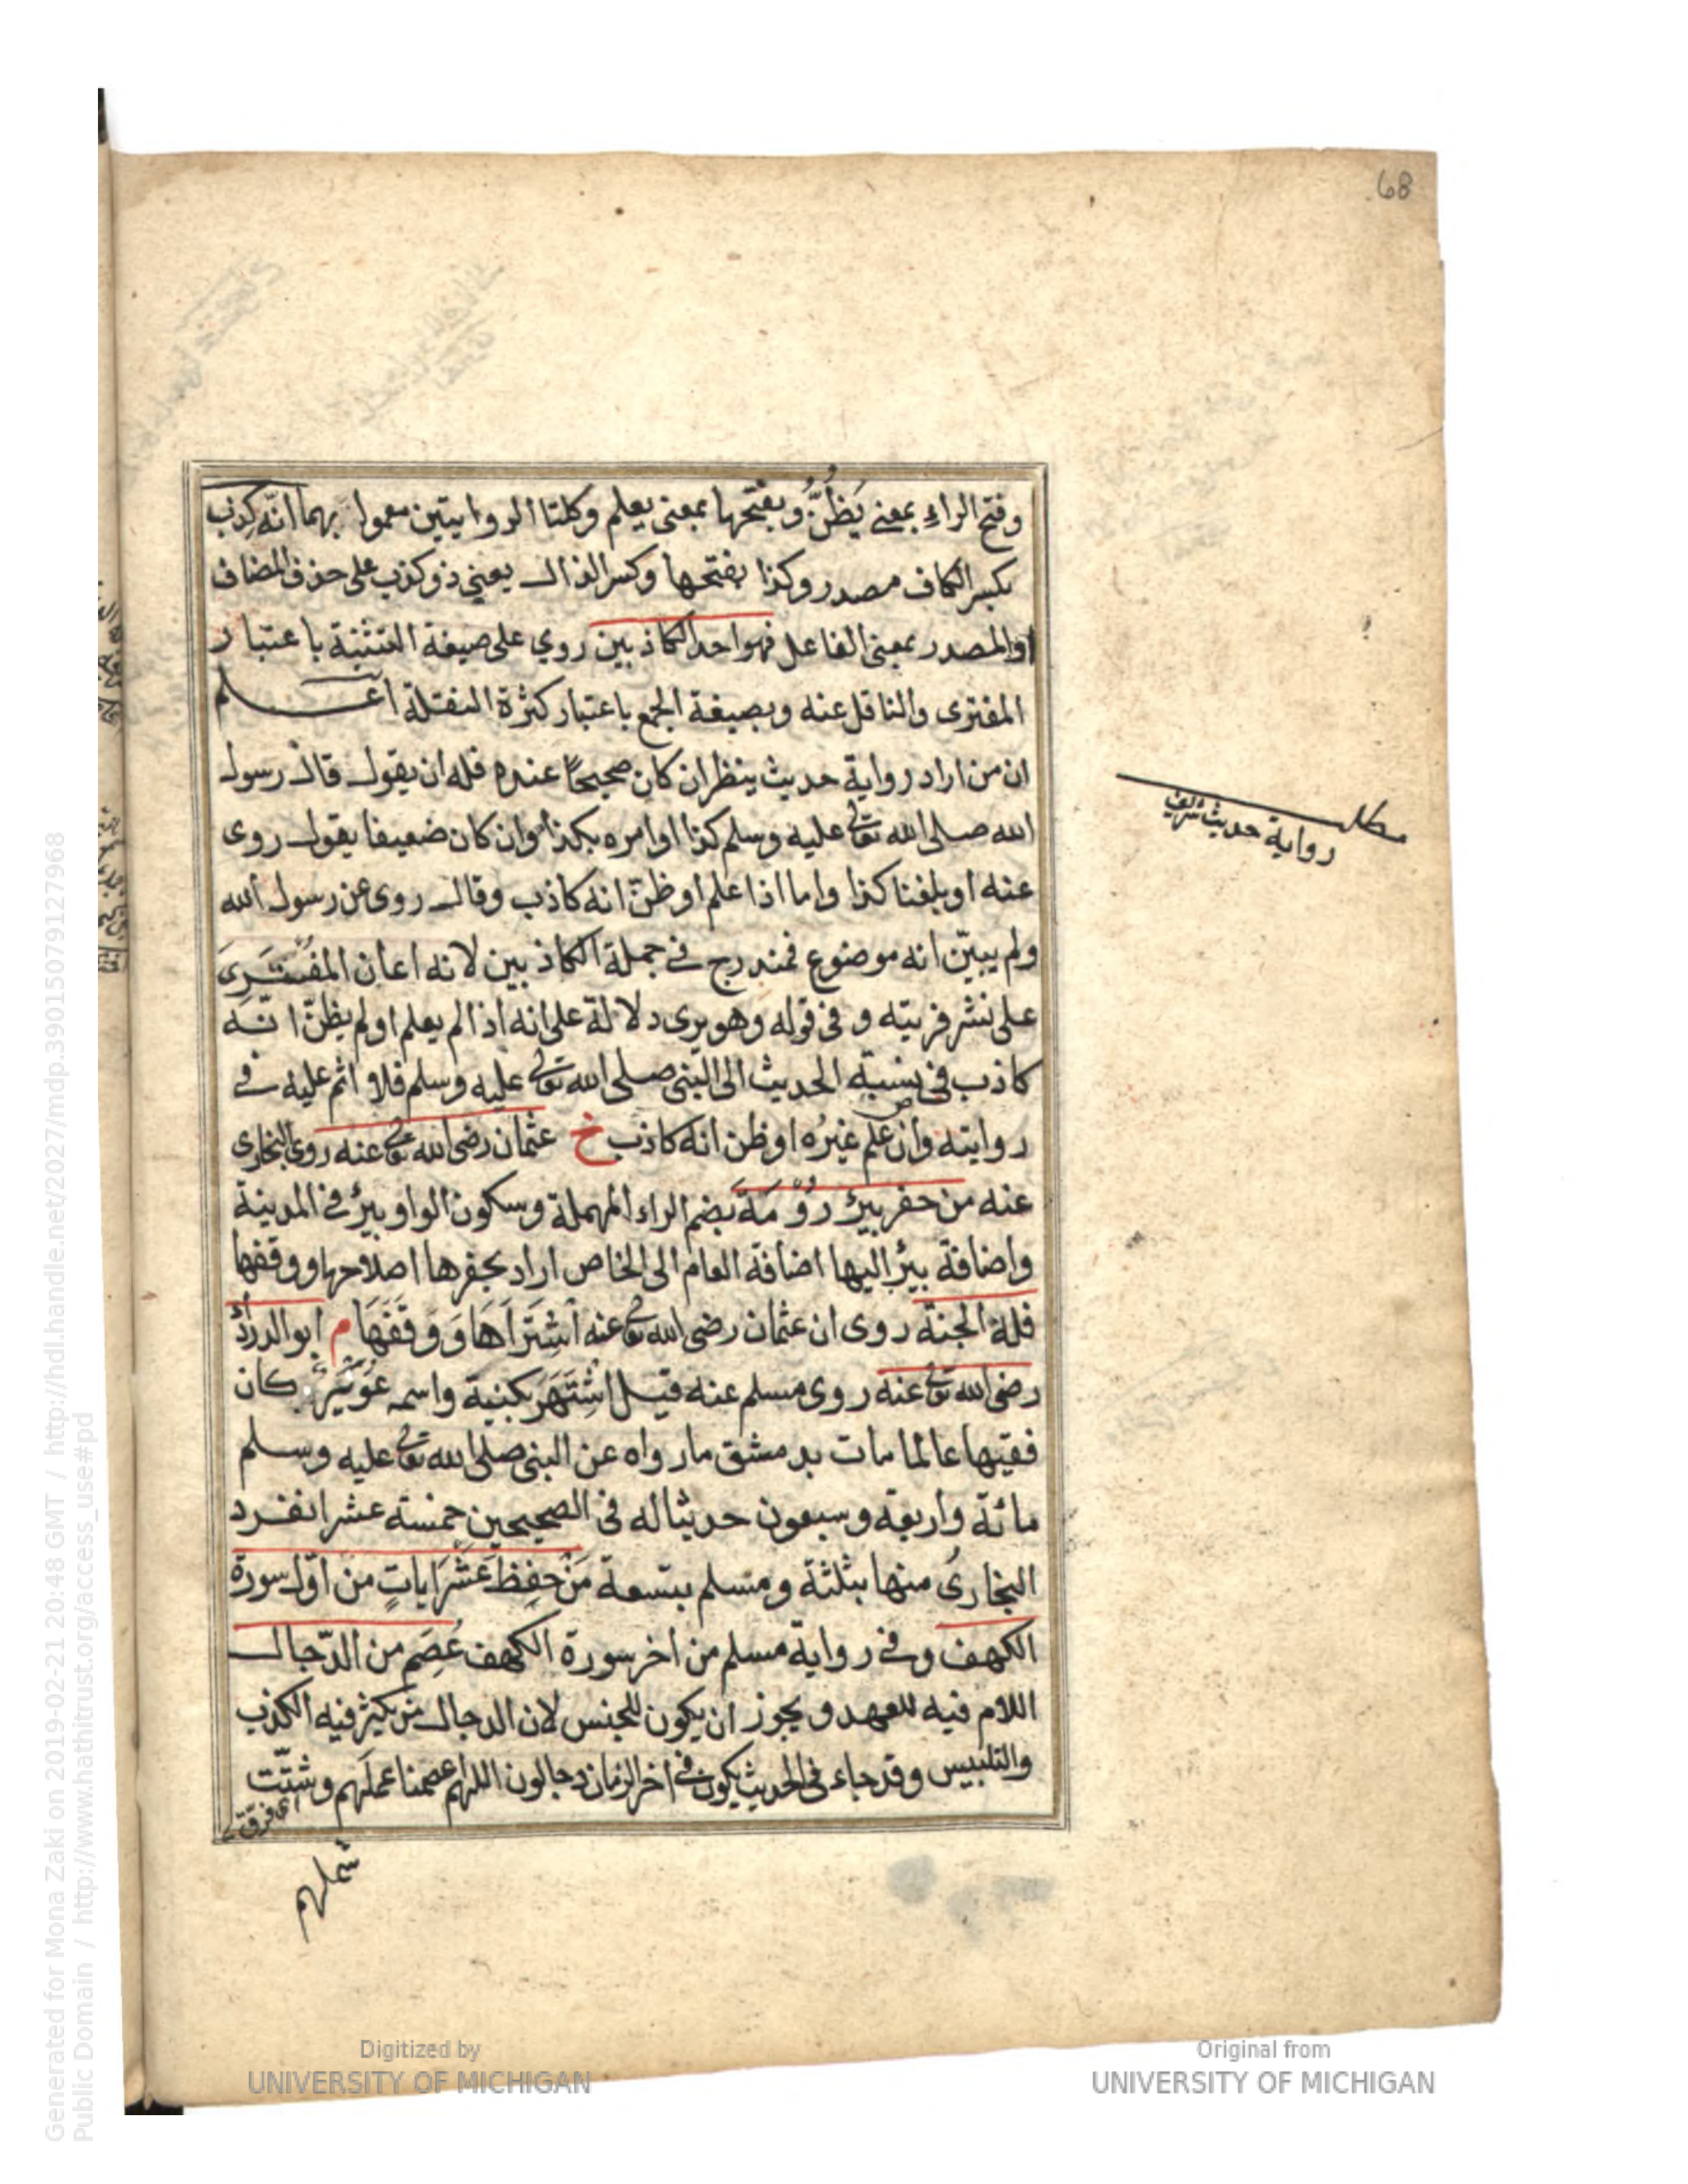 68
وفتح الراء بمعنى يَظُنُّ وبفتحها بمعنى يعلم وكلتا الروايتين معمول بهما انّه كِذب
بكسر الكاف مصدر وكذا بفتحها وكسر الذال يعنى ذو كذب على حذف المضاف
او المصدر بمعنى الفاعل فهو احد الكاذبين روي على صيغة التثنية باعتبار
المفترى والناقل عنه وبصيغة الجمع باعتبار كثرة النقلة اعلم
ان من اراد رواية حديث ينظر ان كان صحيحًا عنده فله ان يقول قال رسول
الله صلى الله تعالى عليه وسلم كذا او امره بكذا وان كان ضعيفا يقول روى
عنه او بلغنا كذا واما اذا علم او ظنّ انه كاذب وقال روى عن رسول الله
ولم يبيّن انه موضوع فمندرج فى جملة الكاذبين لانه اعان المفترى
على نشر فريته و فى قوله وهو يرى دلالة على انه اذا لم يعلم او لم يظنّ انّه
كاذب فى نسبة الحديث الى النبى صلى الله تعالى عليه وسلم فلا اثم عليه فى
روايته وان علم غيرُه او ظن انه كاذب خ عثمان رضى الله تعالى عنه روى البخارى
عنه من حفر بئر رُوْمَةَ بضم الراء المهملة وسكون الواو بئر فى المدينة
واضافة بئر اليها اضافة العام الى الخاص اراد بحفرها اصلاحها ووقفها
فله الجنة روى ان عثمان رضى الله تعالى عنه اشتَرَاهَا وَوَقَفَهَا م ابو الدرداء
رضى الله تعالى عنه روى مسلم عنه قيل اشتَهَر بكنية واسمه عويمر كان
فقيها عالما مات بدمشق ما رواه عن النبى صلى الله تعالى عليه وسلم
مائة واربعة وسبعون حديثا له فى الصحيحين خمسة عشر انفرد
البخارىُ منها بثلثة ومسلم بتسعة مَنْ حفِظ عَشْرَ اياتٍ من اوّل سورة
الكهف وفى رواية مسلم من اخر سورة الكهف عُصِمَ من الدّجال
اللام فيه للعهد و يجوز ان يكون للجنس لان الدجال من يكثر فيه الكذب
والتلبيس وقد جاء فى الحديث يكون فى اخر الزمان دجالون اللهم اعصمنا عملهم وشتّت
اى فرّق
شملهم
مطلب
رواية حديث شريف
Digitized by
UNIVERSITY OF MICHIGAN
Original from
UNIVERSITY OF MICHIGAN
Generated for Mona Zaki on 2019-02-21 20:48 GMT / http://hdl.handle.net/2027/mdp.39015079127968
Public Domain / http://www.hathitrust.org/access_use#pd